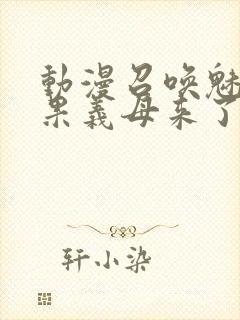 動漫召喚魅
果義母来了
轩小染